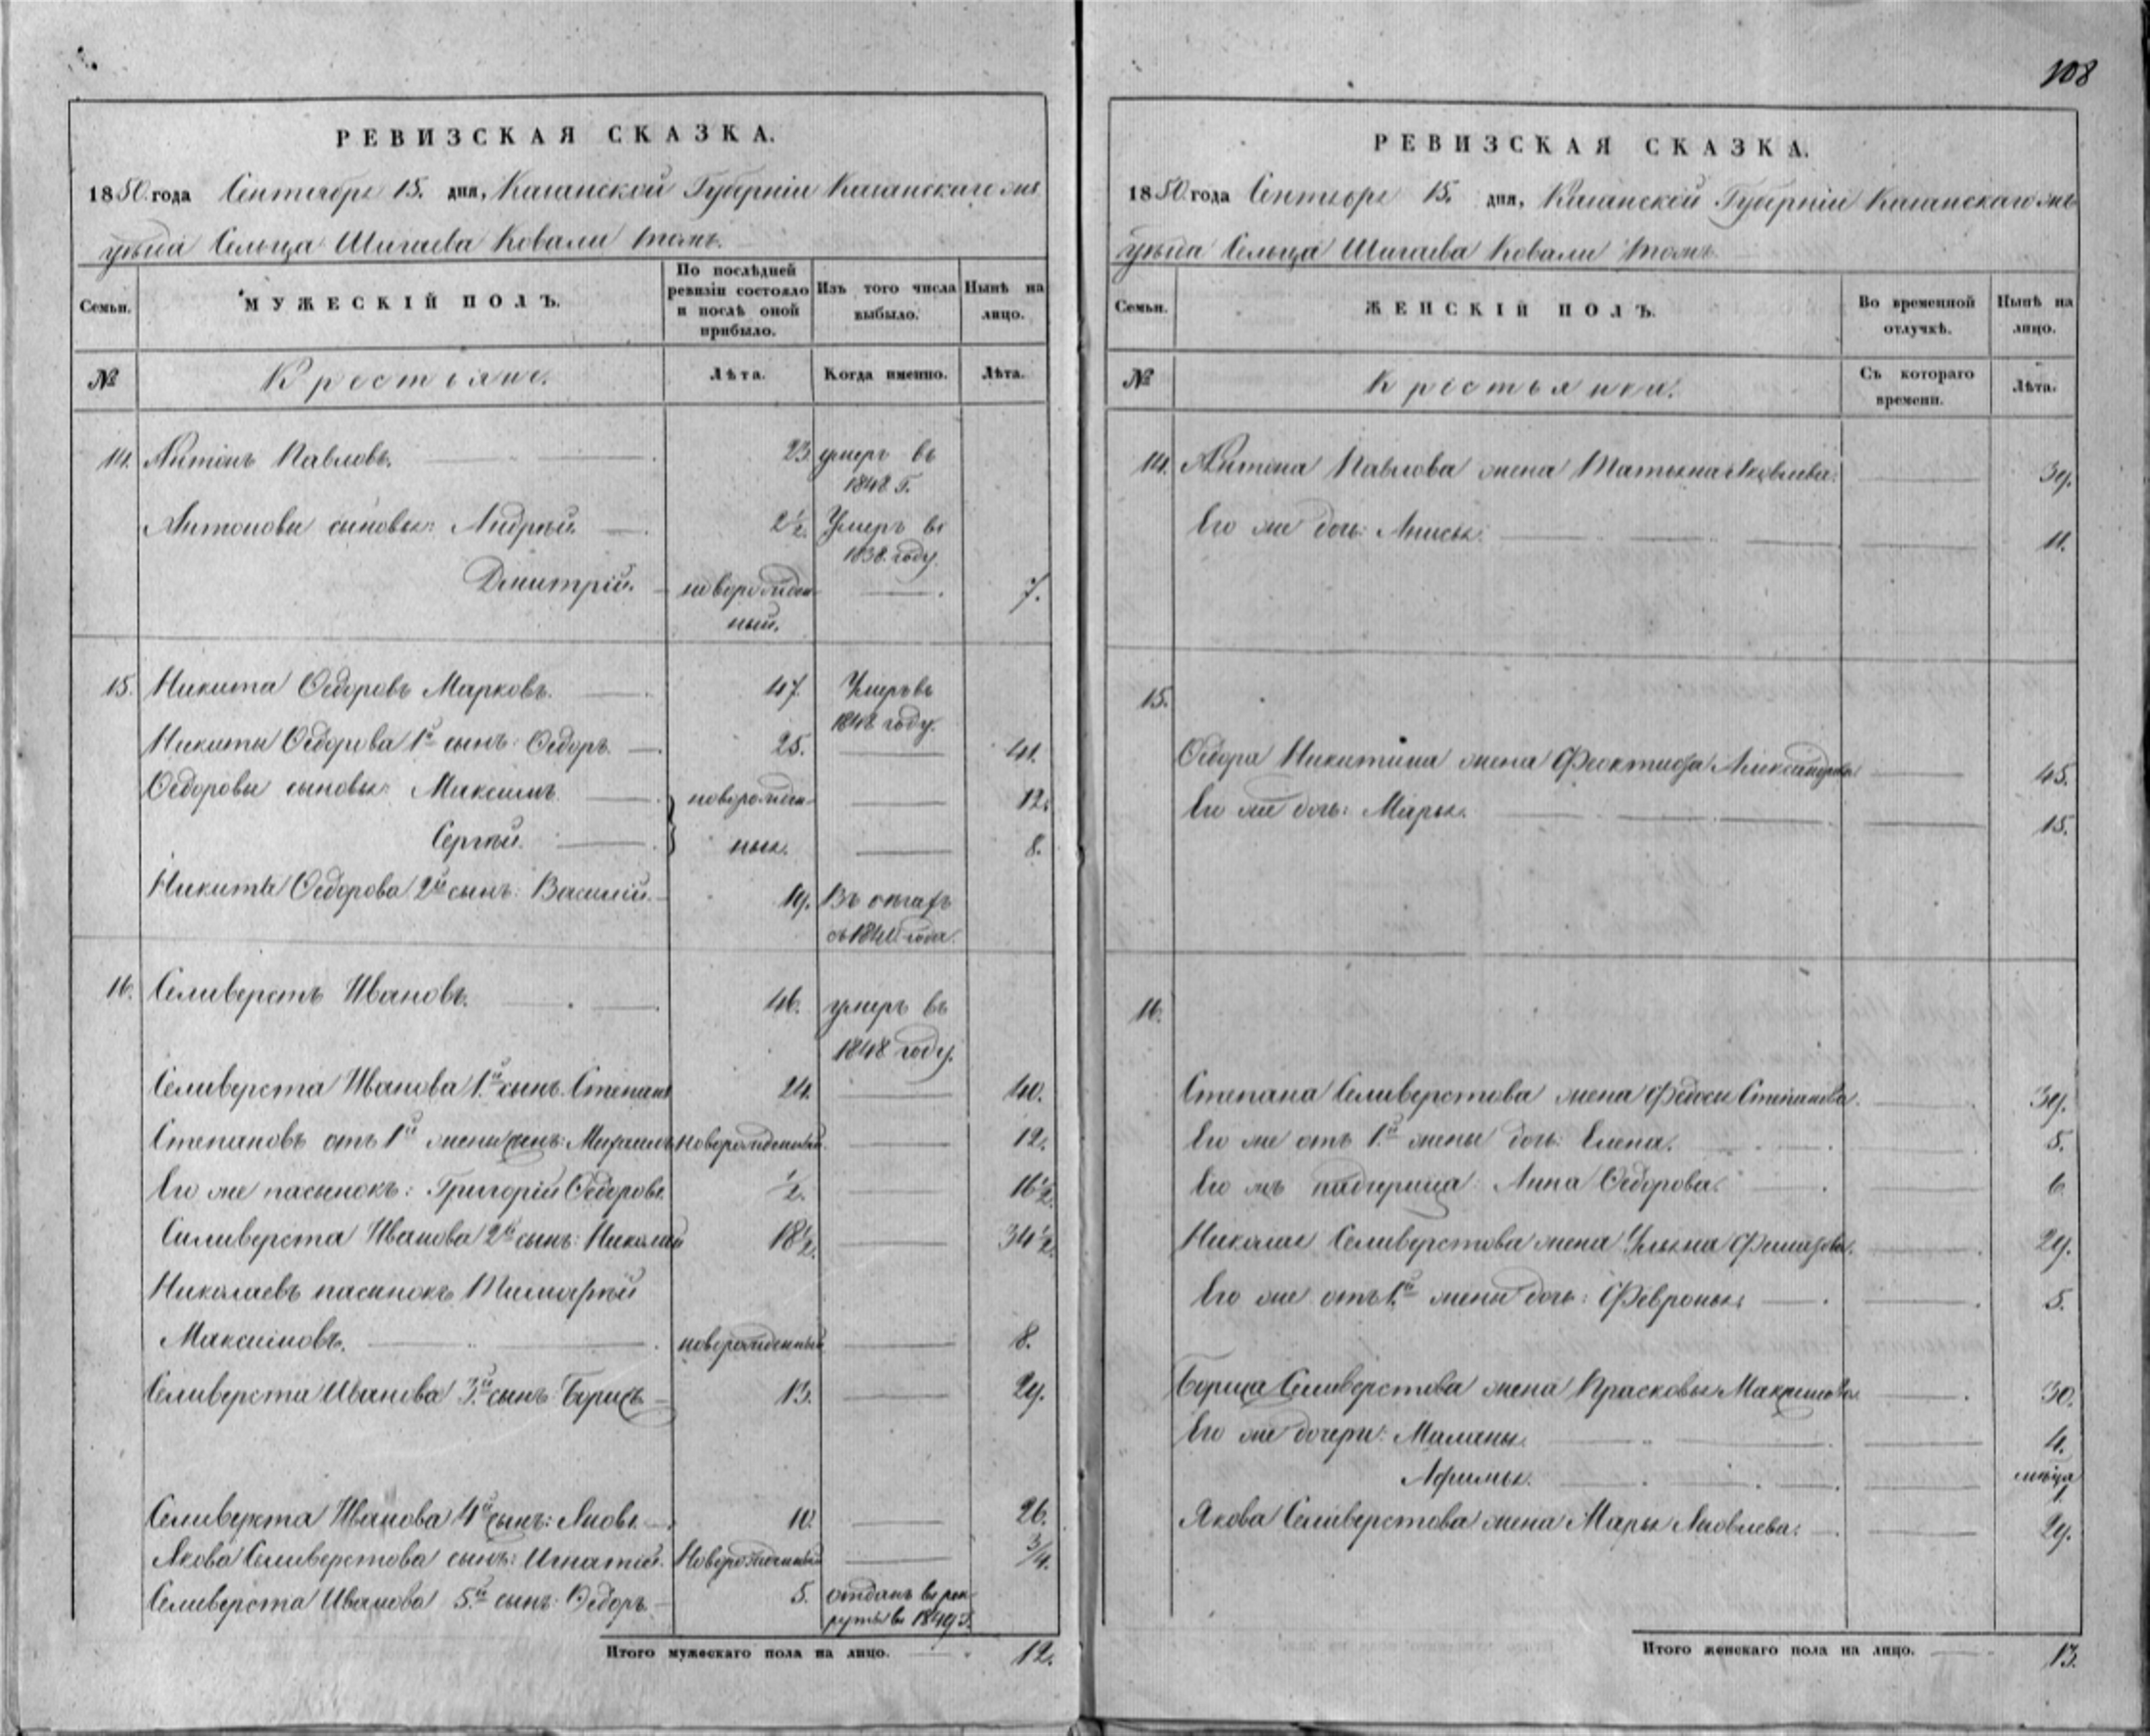 108
РЕВИЗСКАЯ СКАЗКА.
1850 года Сентября 15. дня, Казанской Губерніи Казанскаго
уѣзда Сельца Шигаева Ковали тожъ.
Семьи.
МУЖЕСКІЙ ПОЛЪ.
По послѣдней
ревизіи состояло
и послѣ оной
прибыло.
Изъ того числа
выбыло.
Нынѣ на
лицо.
№
Крестьяне.
Лѣта.
Когда именно.
Лѣта.
14. Антонъ Павловъ. 23 умеръ въ
1848 г.
Антоновы сыновья: Андрей 2 1/2. Умеръ въ
1838 году.
Дмитрій. новорожден- 7.
ный.
15. Никита Ѳедоровъ Марковъ. 47. Умеръ въ
1848 году.
Никиты Ѳедорова 1й сынъ: Ѳедоръ. 25. 41.
Ѳедоровы сыновья: Максимъ новорожден- 12.
Сергѣй. ныя. 8.
Никиты Ѳедорова 2й сынъ: Василій. 19. Въ
съ года.
16. Селиверстъ Ивановъ. 46. умеръ въ
1848 году.
Селиверста Иванова 1й сынъ: Степанъ 24. 40.
Степановъ отъ 1й жены сынъ: новорожденный. 12.
Его же пасынокъ: Григорій Ѳедоровъ. 1/2. 16 1/2.
Силиверста Иванова 2й сынъ: Николай 18 1/2. 34 1/2.
Николаевъ пасынокъ Тимофѣй
Максимовъ. новорожденный 8.
Селиверста Иванова 3й сынъ: Борисъ 13. 29.
Селиверста Иванова 4й сынъ: Яковъ 10. 26.
Якова Селиверстова сынъ: Игнатій. Новорожденный 3/4.
Селиверста Иванова 5й сынъ: Ѳедоръ. 5. отданъ въ рек-
руты въ 1849 г.
Итого мужескаго пола на лицо. 12.
РЕВИЗСКАЯ СКАЗКА.
1850 года Сентября 15. дня, Казанской Губерніи Казанскаго
уѣзда Сельца Шигаева Ковали тожъ.
Семьи.
ЖЕНСКІЙ ПОЛЪ.
Во временной
отлучкѣ.
Нынѣ на
лицо.
№
Крестьянки.
Съ котораго
времени.
Лѣта.
14. Антона Павлова жена Татьяна Яковлева. 39.
Его же дочь: Анисья. 11.
15.
Ѳедора Никитина жена Феоктиста Александрова 45.
Его же дочь: Марья. 15.
16.
Степана Селиверстова жена Федосья Степанова. 39.
Его же отъ 1й жены дочь: Елена. 5.
Его жъ падчерица Анна Ѳедорова. 6.
Николая Селиверстова жена Ульяна 29.
Его же отъ 1й жены дочь: Февронья 5.
Бориса Селиверстова жена Прасковья Максимова. 30.
Его же дочери: Маланья. 4.
Афимья.
Якова Селиверстова жена Марья Яковлева. 29.
Итого женскаго пола на лицо. 13.